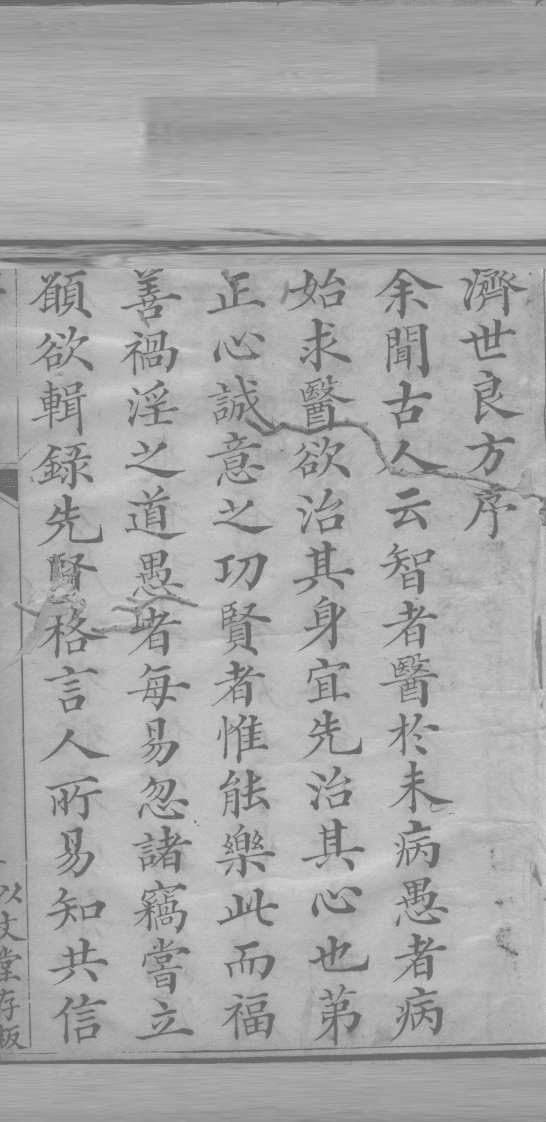 濟世良方序
余聞古人云智者醫於未病愚者病
始求醫欲治其身宜先治其心也苐
正心誠意之功賢者惟能樂此而福
善禍淫之道愚者每易忽諸竊嘗立
願欲輯録先賢格言人所易知共信
以文堂存板